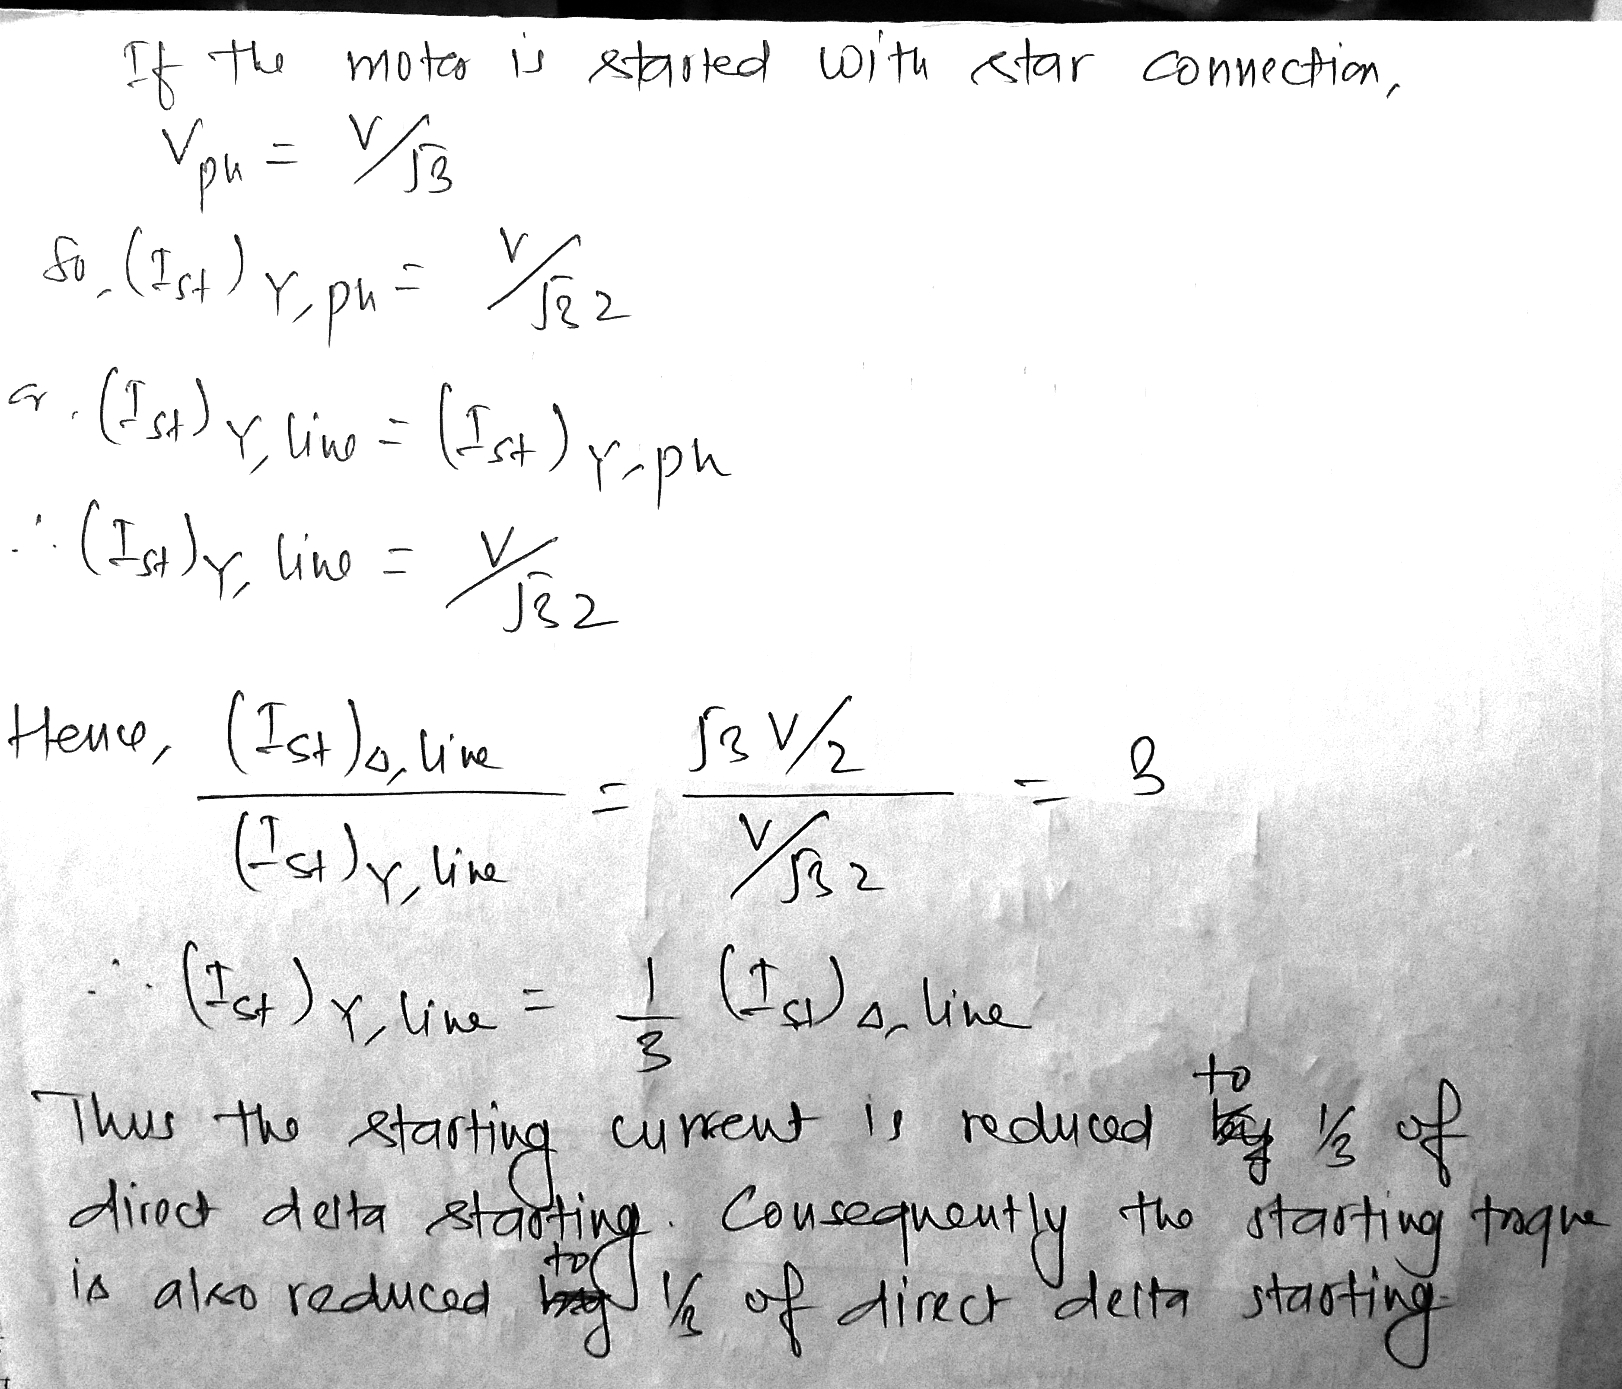 If the motor is started with star connection,
Vph = V/√3
So, (Ist)Y,ph = V/√3 2
or, (Ist)Y, line = (Ist)Y,ph
∴ (Ist)Y, line = V/√3 2
Hence, (Ist)Δ, line / (Ist)Y, line = √3 V/2 / V/√3 2 = 3
∴ (Ist)Y, line = 1/3 (Ist)Δ, line
Thus the starting current is reduced to 1/3 of
direct delta starting. Consequently the starting torque
is also reduced to 1/3 of direct delta starting.